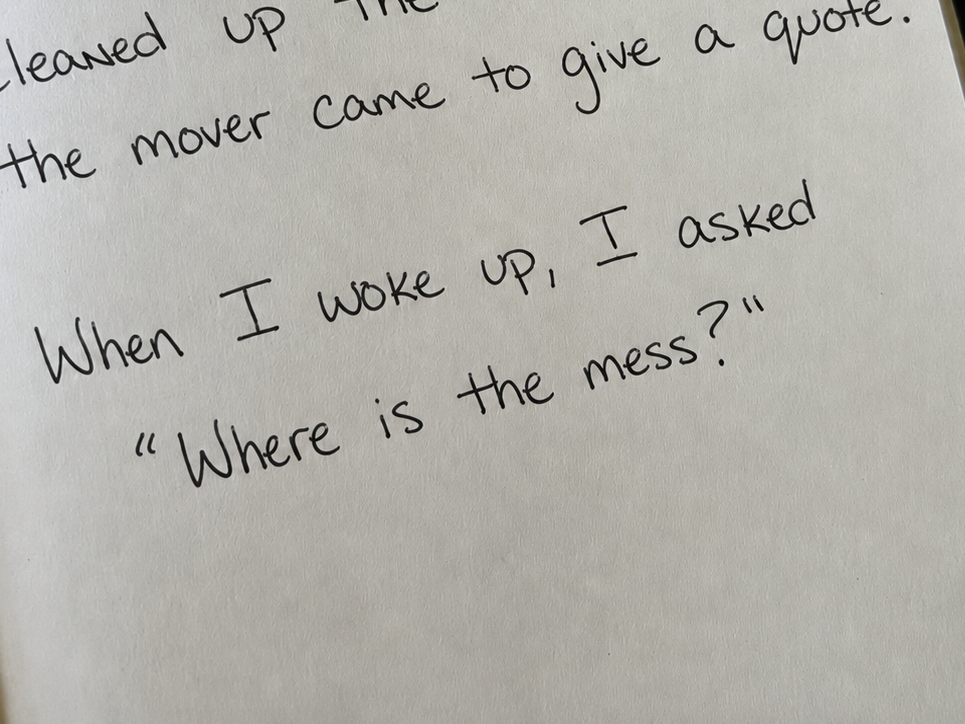 cleaned up the
the mover came to give a quote.
When I woke up, I asked
"Where is the mess?"